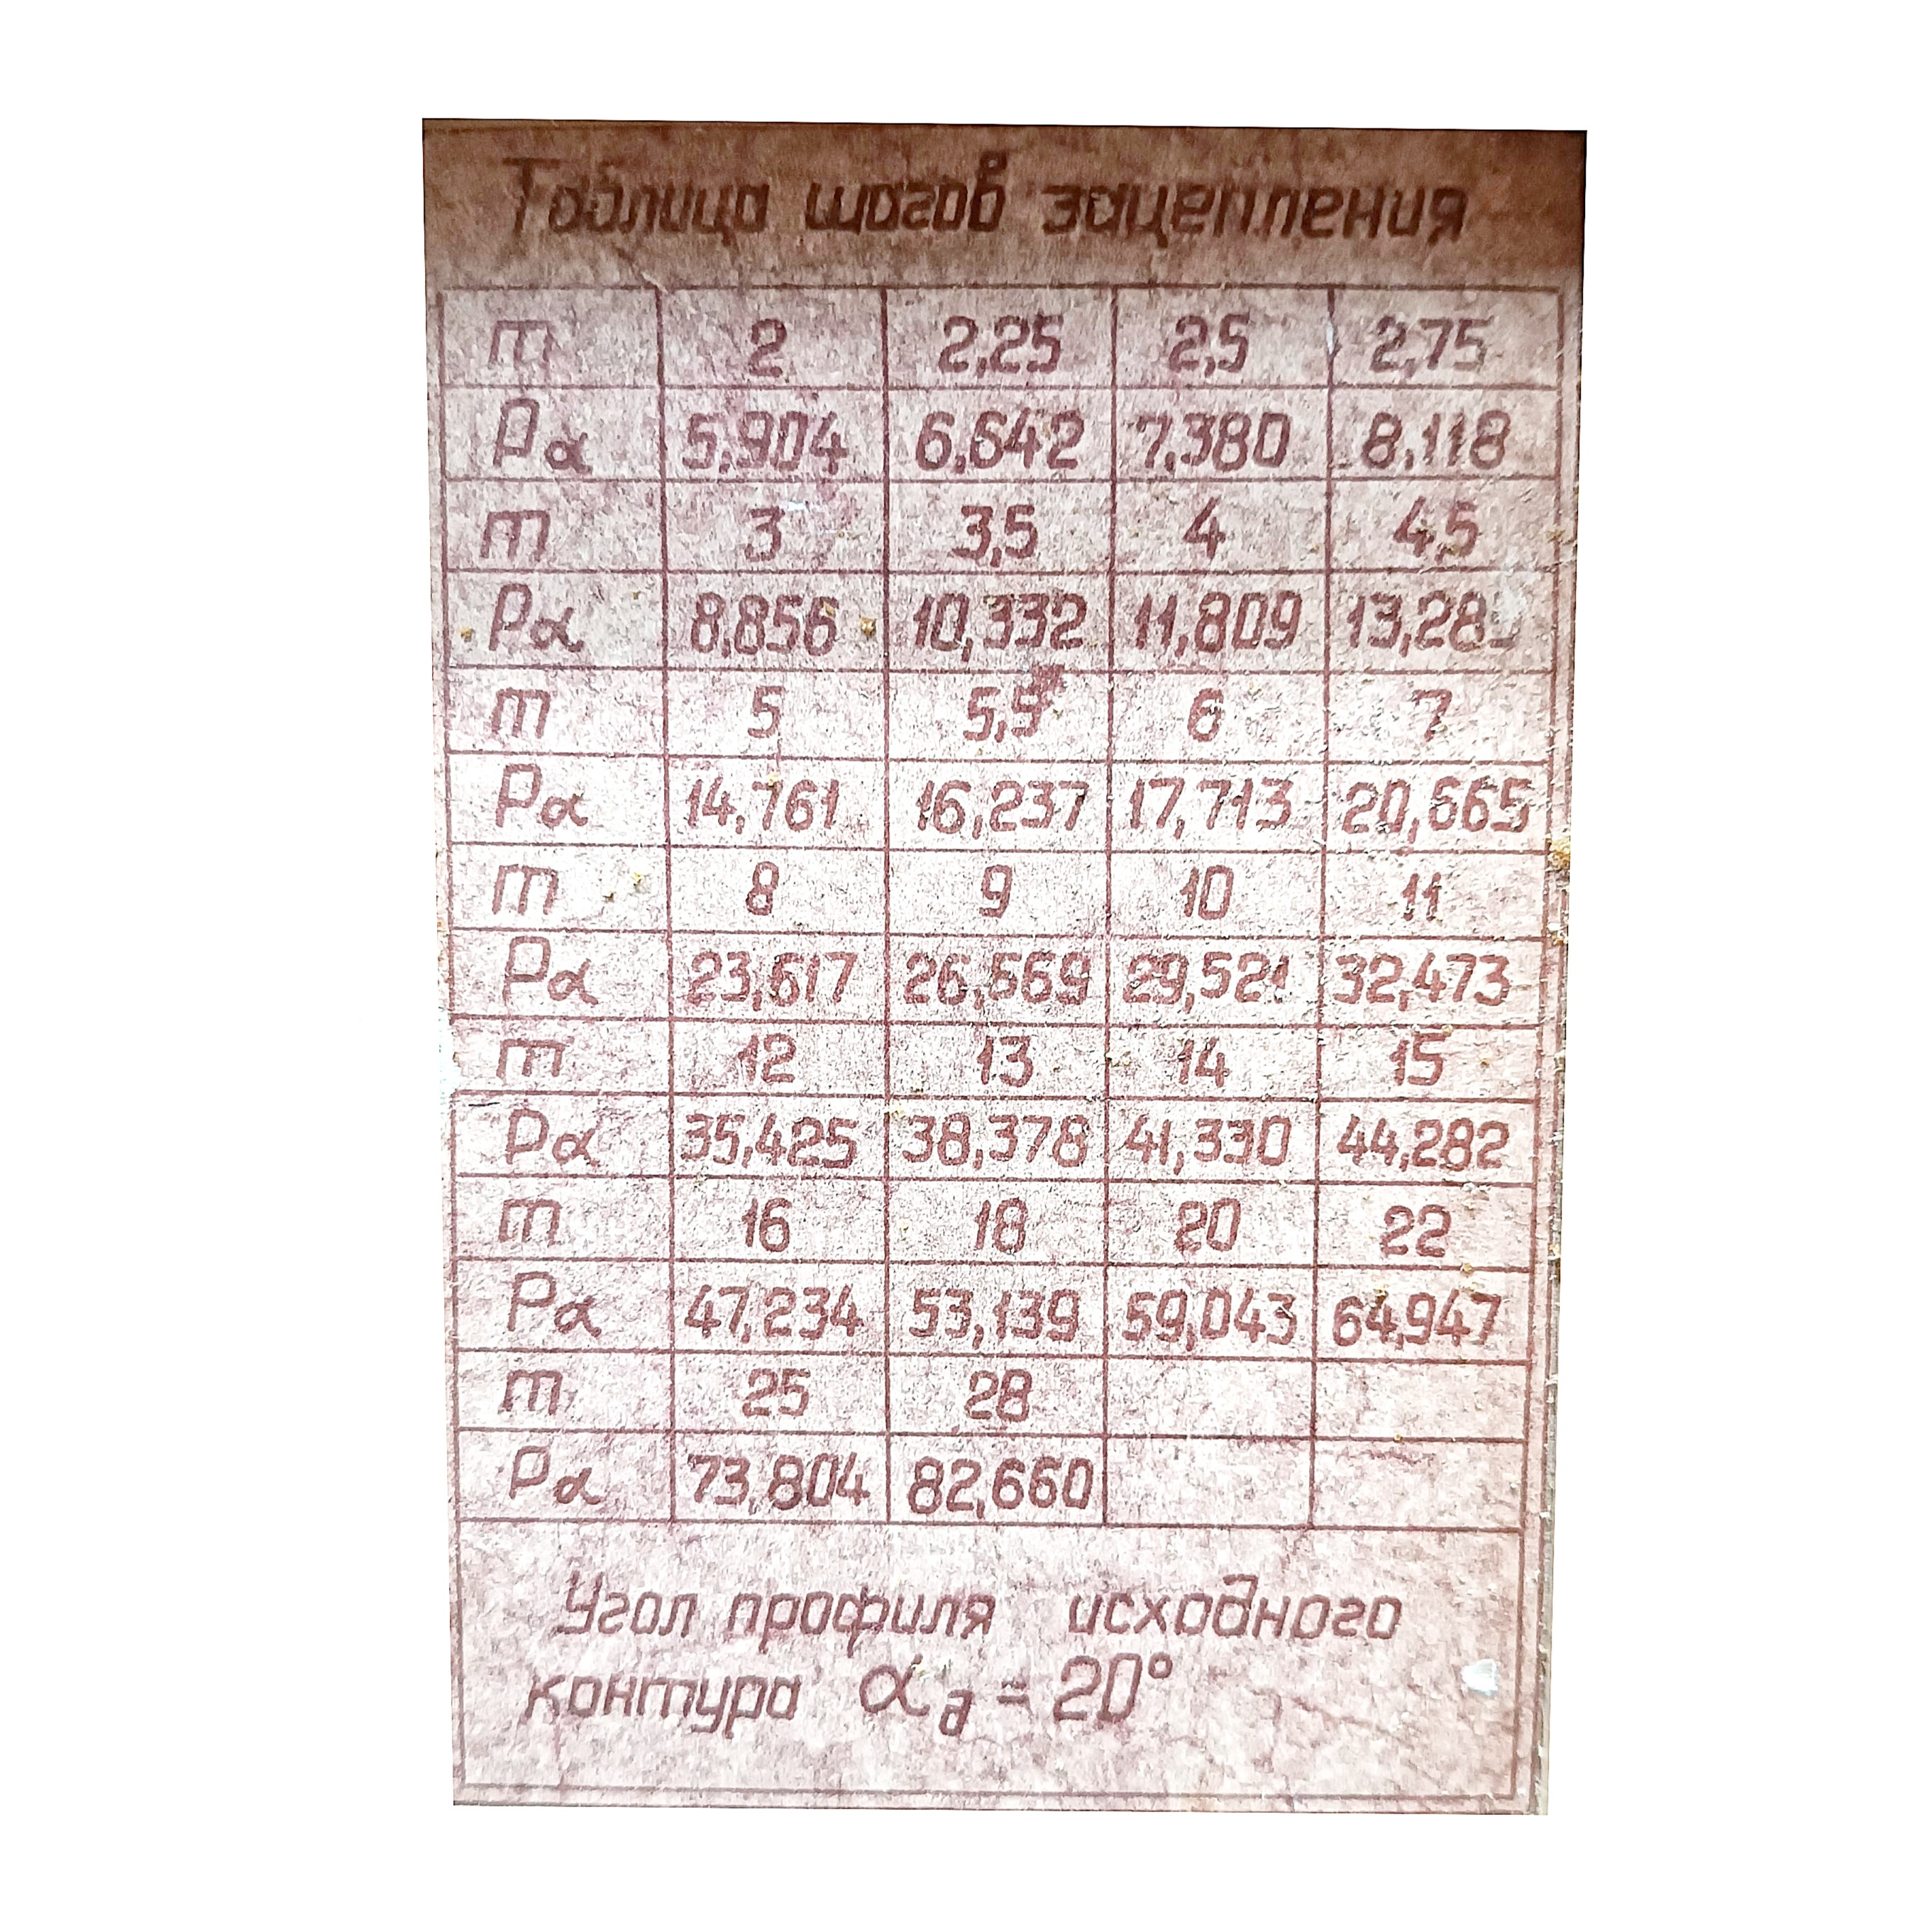 Таблица шагов зацепления
m 2 2,25 2,5 2,75
Pα 5,904 6,642 7,380 8,118
m 3 3,5 4 4,5
Pα 8,856 10,332 11,809
m 5 5,5 6 7
Pα 14,761 16,237 17,713 20,665
m 8 9 10 11
Pα 23,617 26,569 29,521 32,473
m 12 13 14 15
Pα 35,425 38,378 41,330 44,282
m 16 18 20 22
Pα 47,234 53,139 59,043 64,947
m 25 28
Pα 73,804 82,660
Угол профиля исходного
контура αд = 20°